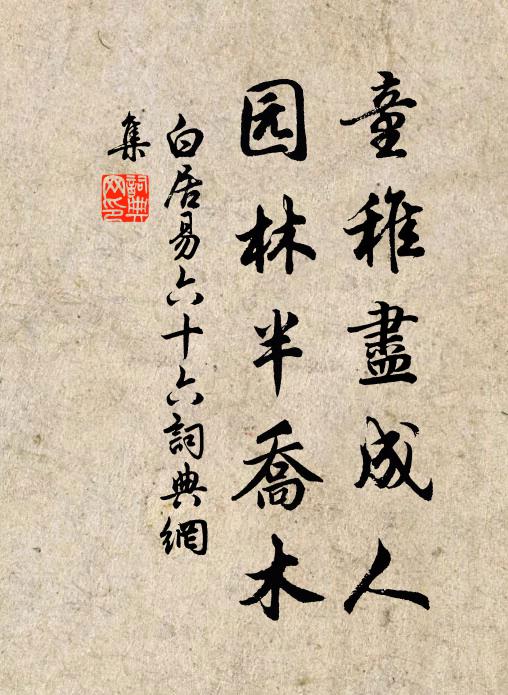 童稚盡成人
园林半喬木
白居易六十六詞典網
集
詞典
网印